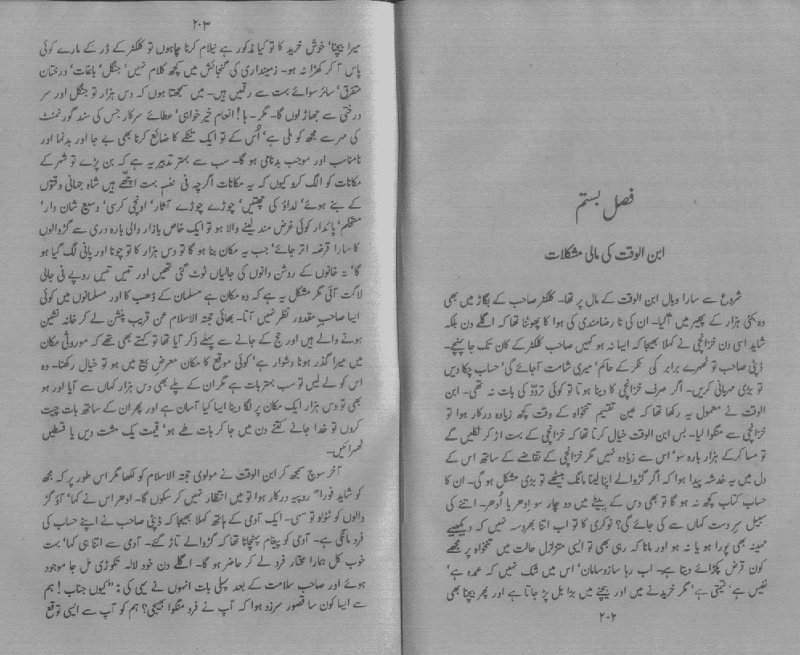 فصل بستم
ابن الوقت کی مالی مشکلات
شروع سے سارا وبال ابن الوقت کے مال پر تھا۔ کلکٹر صاحب کے بگاڑ میں بھی
وہ کئی ہزار کے پھیر میں آگیا۔ ان کی نا رضامندی کی ہوا کا پھوٹنا تھا کہ اگلے دن بلکہ
شاید اسی دن خزانچی نے کہلا بھیجا کہ ایسا نہ ہو کہیں صاحب کلکٹر کے کان تک جا پہنچے۔
ڈپٹی صاحب تو ٹھہرے برابر کی ٹکر کے حاکم' میری شامت آجائے گی' حساب چکا دیں
تو بڑی مہربانی کریں۔ اگر صرف خزانچی کا دینا ہوتا تو کوئی تردّد کی بات نہ تھی۔ ابن
الوقت نے معمول یہ رکھا تھا کہ عین تقسیم تنخواہ کے وقت کچھ زیادہ درکار ہوا تو
خزانچی سے منگوا لیا۔ بس ابن الوقت خیال کرتا تھا کہ خزانچی کے بہت اڑ کر نکلیں گے
تو مسا کر کے ہزار بارہ سو' اس سے زیادہ نہیں مگر خزانچی کے تقاضے کے ساتھ اس کے
دل میں یہ خدشہ پیدا ہوا کہ اگر گڑوالے اپنا لینا مانگ بیٹھے تو بڑی مشکل ہو گی۔ ان کا
حساب کتاب کچھ نہ ہو گا تو بھی دس کے بیٹے میں دو چار سو اِدھر یا اُدھر۔ اتنے کی
سبیل سرِ دست کہاں سے کی جائے گی؟ نوکری کا تو اب اتنا بھروسہ نہیں کہ دیکھیے
مہینہ بھی پورا ہو یا نہ ہو اور مانا کہ رہی بھی تو ایسی متزلزل حالت میں تنخواہ پر مجھے
کون قرض پکڑائے دیتا ہے۔ اب رہا سازوسامان' اس میں شک نہیں کہ عمدہ ہے'
نفیس ہے' قیمتی ہے' مگر خریدنے میں اور بیچنے میں بڑا بل پڑ جاتا ہے اور پھر بیچنا بھی
۲۰۲
۲۰۳
میرا بیچنا' خوش خرید کا تو کیا مذکور ہے نیلام کرنا چاہوں تو کلکٹر کے ڈر کے مارے کوئی
پاس آ کر کھڑا نہ ہو۔ زمینداری کی گنجائش میں کچھ کلام نہیں' جنگل' باغات' درختان
متفرق' سائر سوائے بہت سے رقمیں ہیں۔ میں سمجھتا ہوں کہ دس ہزار تو جنگل اور سر
درختی سے جھاڑ لوں گا۔ مگر۔ ہا! انعام خیر خواہی' عطائے سرکار جس کی سند گورنمنٹ
کی مہر سے مجھ کو ملی ہے' اُس کے تو ایک تنکے کا ضائع کرنا بھی بے جا اور بدنما اور
نامناسب اور موجب بدنامی ہو گا۔ سب سے بہتر تدبیر یہ ہے کہ بن پڑے تو شہر کے
مکانات کو الگ کرو کیوں کہ یہ مکانات اگرچہ فی نفسہٖ بہت اچھے ہیں شاہ جہانی وقتوں
کے بنے ہوئے' لداؤ کی چھتیں' چوڑے چوڑے آثار' اونچی کرسی' وسیع شان دار'
مستحکم' پائدار کوئی غرض مند لینے والا ہو تو ایک خاص بازار والی بارہ دری سے گڑوالوں
کا سارا قرضہ اتر جائے' جب یہ مکان بنا ہو گا تو دس ہزار کا تو چونا اور پانی لگ گیا ہو
گا' تہ خانوں کے روشن دانوں کی جالیاں ٹوٹ گئی تھیں اور تیس تیس روپے فی جالی
لاگت آئی مگر مشکل یہ ہے کہ وہ مکان ہے مسلمان کے ڈھب کا اور مسلمانوں میں کوئی
ایسا صاحبِ مقدور نظر نہیں آتا۔ بھائی حجتہ الاسلام عن قریب پنشن لے کر خانہ نشین
ہونے والے ہیں اور حج کے جانے سے پہلے ذکر آیا تھا تو کہتے بھی تھے کہ موروثی مکان
میں میرا گذر ہونا دشوار ہے' کوئی موقع کا مکان معرضِ بیع میں ہو تو خیال رکھنا۔ وہ
اس کو لے لیں تو سب سے بہتر بات ہے مگر ان کے پلے بھی دس ہزار کہاں سے آیا اور ہو
بھی تو دس ہزار ایک مکان پر لگا دینا ایسا کیا آسان ہے اور پھر ان کے ساتھ بات چیت
کروں تو خدا جانے کتنے دن میں جا کر بات طے ہو' قیمت یک مشت دیں یا قسطیں
ٹھہرائیں۔
آخر سوچ سمجھ کر ابن الوقت نے مولوی حجتہ الاسلام کو لکھا مگر اس طور پر کہ مجھ
کو شاید فوراً روپیہ درکار ہوا تو میں انتظار نہیں کر سکوں گا۔ ادھر اس نے کہا' آؤ گڑ
والوں کو ٹٹولو تو سہی۔ ایک آدمی کے ہاتھ کہلا بھیجا کہ ڈپٹی صاحب نے اپنے حساب کی
فرد مانگی ہے۔ آدمی کو پیغام پہنچانا تھا کہ گڑوالے تاڑ گئے۔ آدمی سے اتنا ہی کہا' بہت
خوب کل ہمارا مختار فرد لے کر حاضر ہو گا۔ اگلے دن خود لالہ نکوڑی مل جا موجود
ہوئے اور صاحب سلامت کے بعد پہلی بات انہوں نے یہی کی: "کیوں جناب! ہم
سے ایسا کون سا قصور سرزد ہوا کہ آپ نے فرد منگوا بھیجی؟ ہم کو آپ سے ایسی توقع